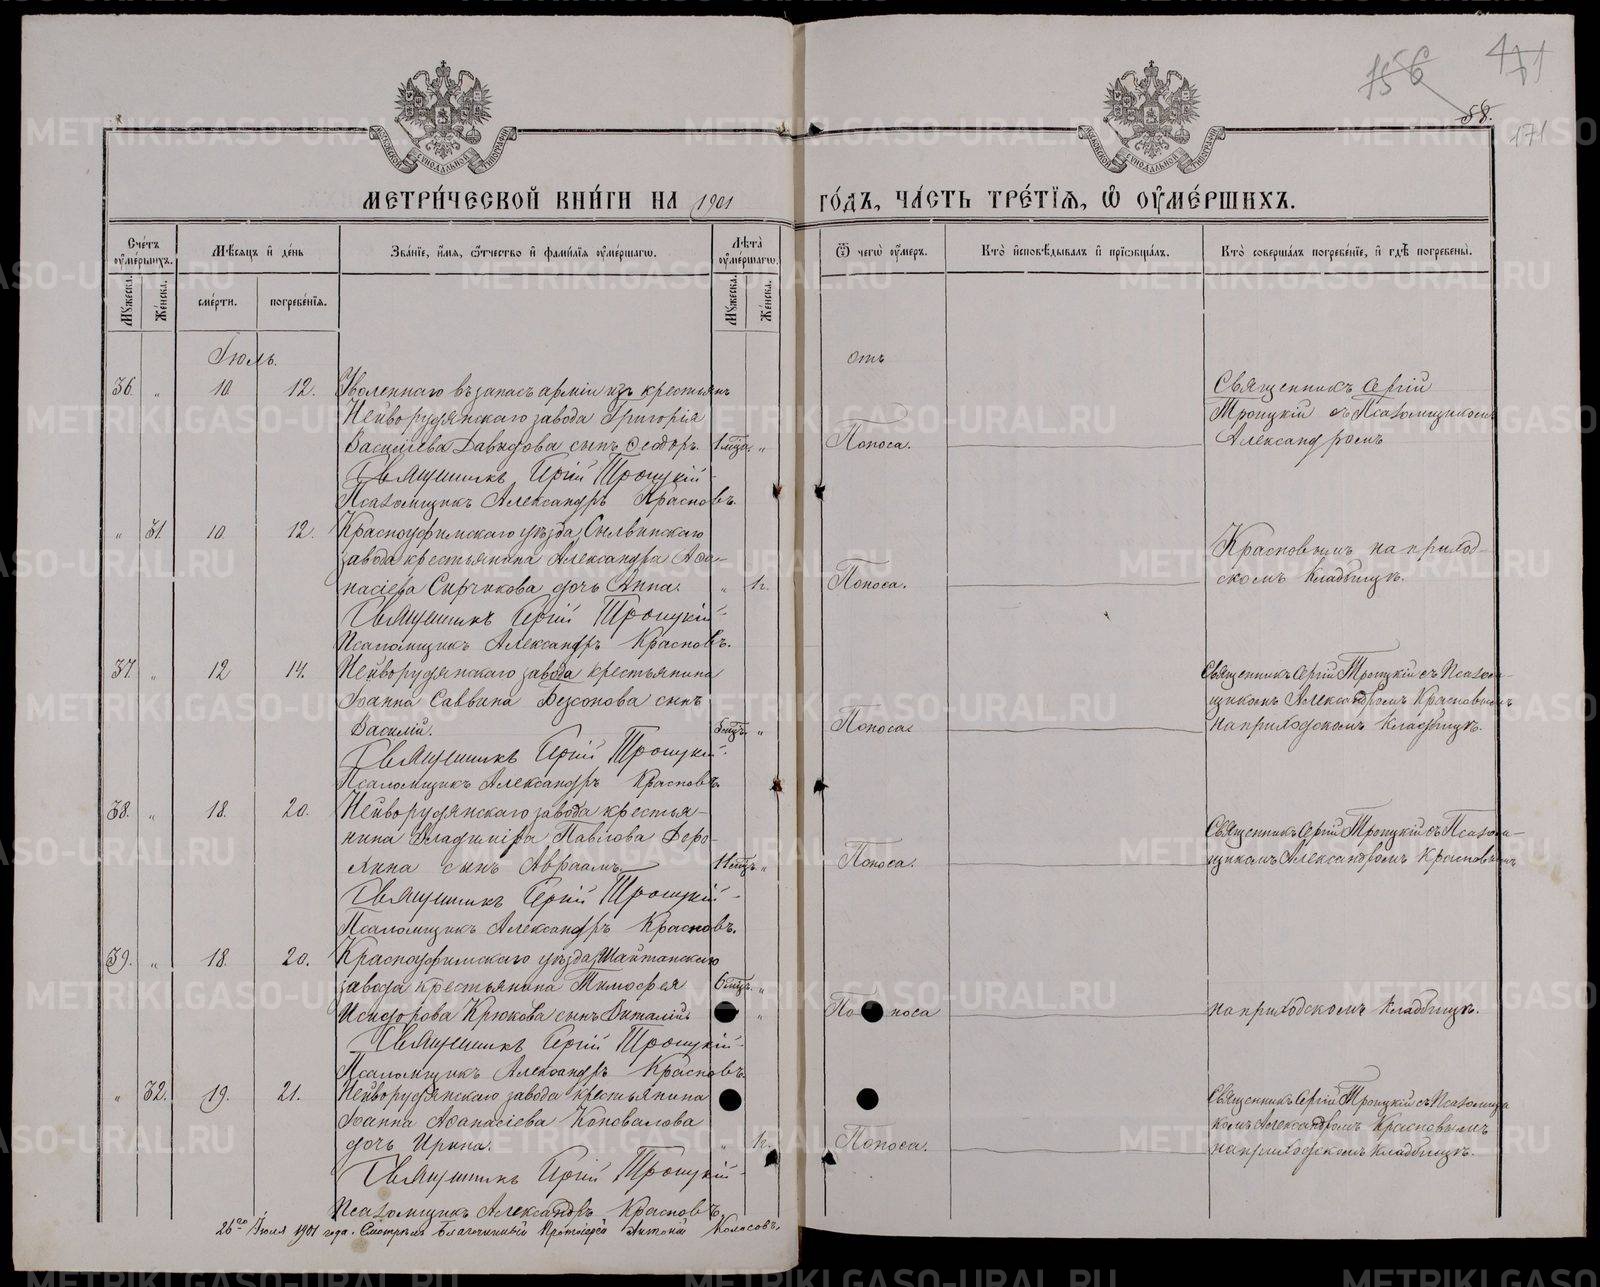 156
471
58.
171
МЕТРИ́ЧЕСКОЙ КНИ́ГИ НА 1901 ГО́ДЪ, ЧА́СТЬ ТРЕ́ТІѦ, Ѡ҆ ОУ҆МЕ́РШИХЪ.
Сче́тъ оу҆ме́ршихъ.
Мѣ́сяцъ и҆ де́нь
Зва́ніе, и҆́мя, ѻ҆́тчество и҆ фами́лія оу҆ме́ршагѡ.
Лѣ́та оу҆ме́ршагѡ.
Ѿ чегѡ̀ оу҆́меръ.
Кто̀ и҆сповѣ́дывалъ и҆ прїѡбща́лъ.
Кто̀ соверша́лъ погребе́ніе, и҆ гдѣ̀ погребены̀.
Му́жеска.
Же́нска.
сме́рти.
погребе́нія.
Му́жеска.
Же́нска.
Іюль.
отъ
36. " 10. 12. Уволеннаго въ запасъ арміи изъ крестьянъ
Нейворудянскаго завода Григорія
Василіева Давыдова сынъ Ѳеодоръ. 1 мца. " Поноса.
Священникъ Сергій Троицкій
Псаломщикъ Александръ Красновъ.
Священникъ Сергій
Троицкій съ Псаломщикомъ
Александромъ
" 31. 10. 12. Красноуфимскаго уѣзда, Сылвинскаго
завода крестьянина Александра Аѳа-
насіева Сыгчикова дочь Анна. " Поноса.
Священникъ Сергій Троицкій
Псаломщикъ Александръ Красновъ.
Красновымъ на приход-
скомъ кладбищѣ.
37. " 12 14. Нейворудянскаго завода крестьянина
Іоанна Саввина Безсонова сынъ
Василій. " Поноса.
Священникъ Сергій Троицкій.
Псаломщикъ Александръ Красновъ.
Священникъ Сергій Троицкій съ Псалом-
щикомъ Александромъ Красновымъ
на приходскомъ кладбищѣ.
38. " 18. 20. Нейворудянскаго завода крестья-
нина Владиміра Павлова Доро-
нина сынъ Авраамъ. " Поноса.
Священникъ Сергій Троицкій
Псаломщикъ Александръ Красновъ.
Священникъ Сергій Троицкій съ Псалом-
щикомъ Александромъ Красновымъ
39. " 18. 20. Красноуфимскаго уѣзда, Шайтанскаго
завода крестьянина Тимоѳея 6 "
Исидорова Крюкова сынъ Виталій " Поноса на приходскомъ кладбищѣ.
Священникъ Сергій Троицкій
Псаломщикъ Александръ Красновъ.
" 32. 19. 21. Нейворудянскаго завода крестьянина
Іоанна Аѳанасіева Коновалова
дочь Ирина. " Поноса.
Священникъ Сергій Троицкій
Псаломщикъ Александръ Красновъ
Священникъ Сергій Троицкій съ Псаломщи
комъ Александромъ Красновымъ
на приходскомъ кладбищѣ.
26го Іюля 1901 года. Смотрѣлъ Благочинный Протоіерей Антоній Колосовъ.
METRIKI.GASO-URAL.RU